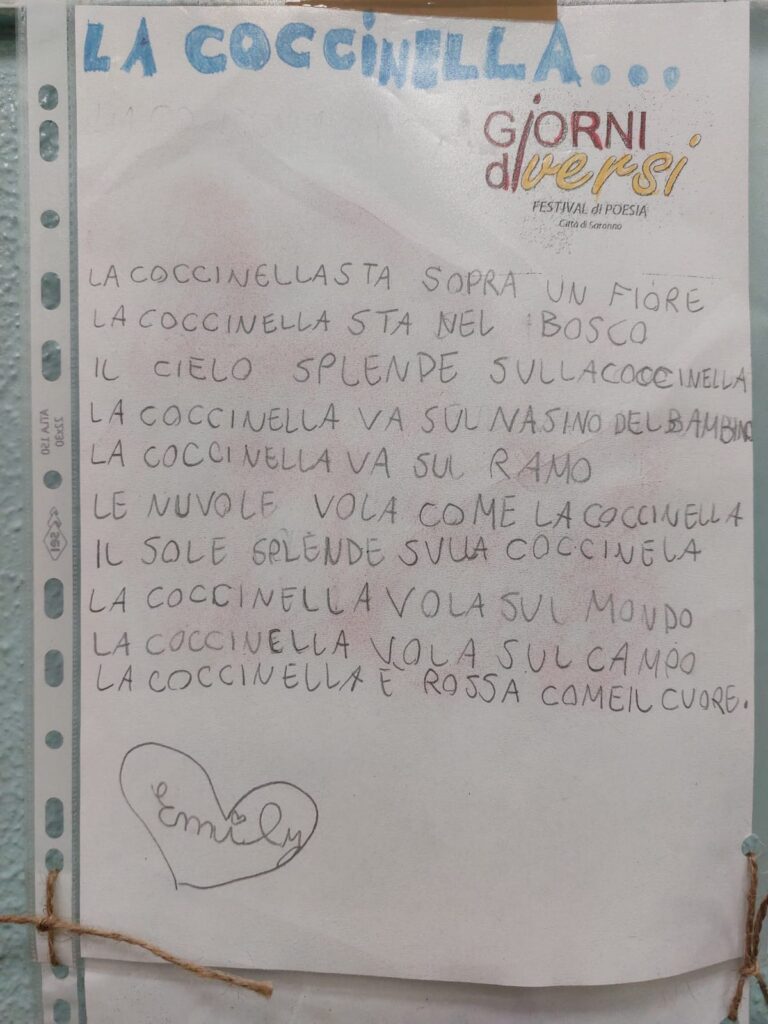 LA COCCINELLA...
GIORNI
diversi
FESTIVAL di POESIA
Città di Saronno
LA COCCINELLA STA SOPRA UN FIORE
LA COCCINELLA STA NEL BOSCO
IL CIELO SPLENDE SULLA COCCINELLA
LA COCCINELLA VA SUL NASINO DEL BAMBINO
LA COCCINELLA VA SUL RAMO
LE NUVOLE VOLA COME LA COCCINELLA
IL SOLE SPLENDE SULLA COCCINELA
LA COCCINELLA VOLA SUL MONDO
LA COCCINELLA VOLA SUL CAMPO
LA COCCINELLA È ROSSA COME IL CUORE.
Emily
ATLA 150
22x30